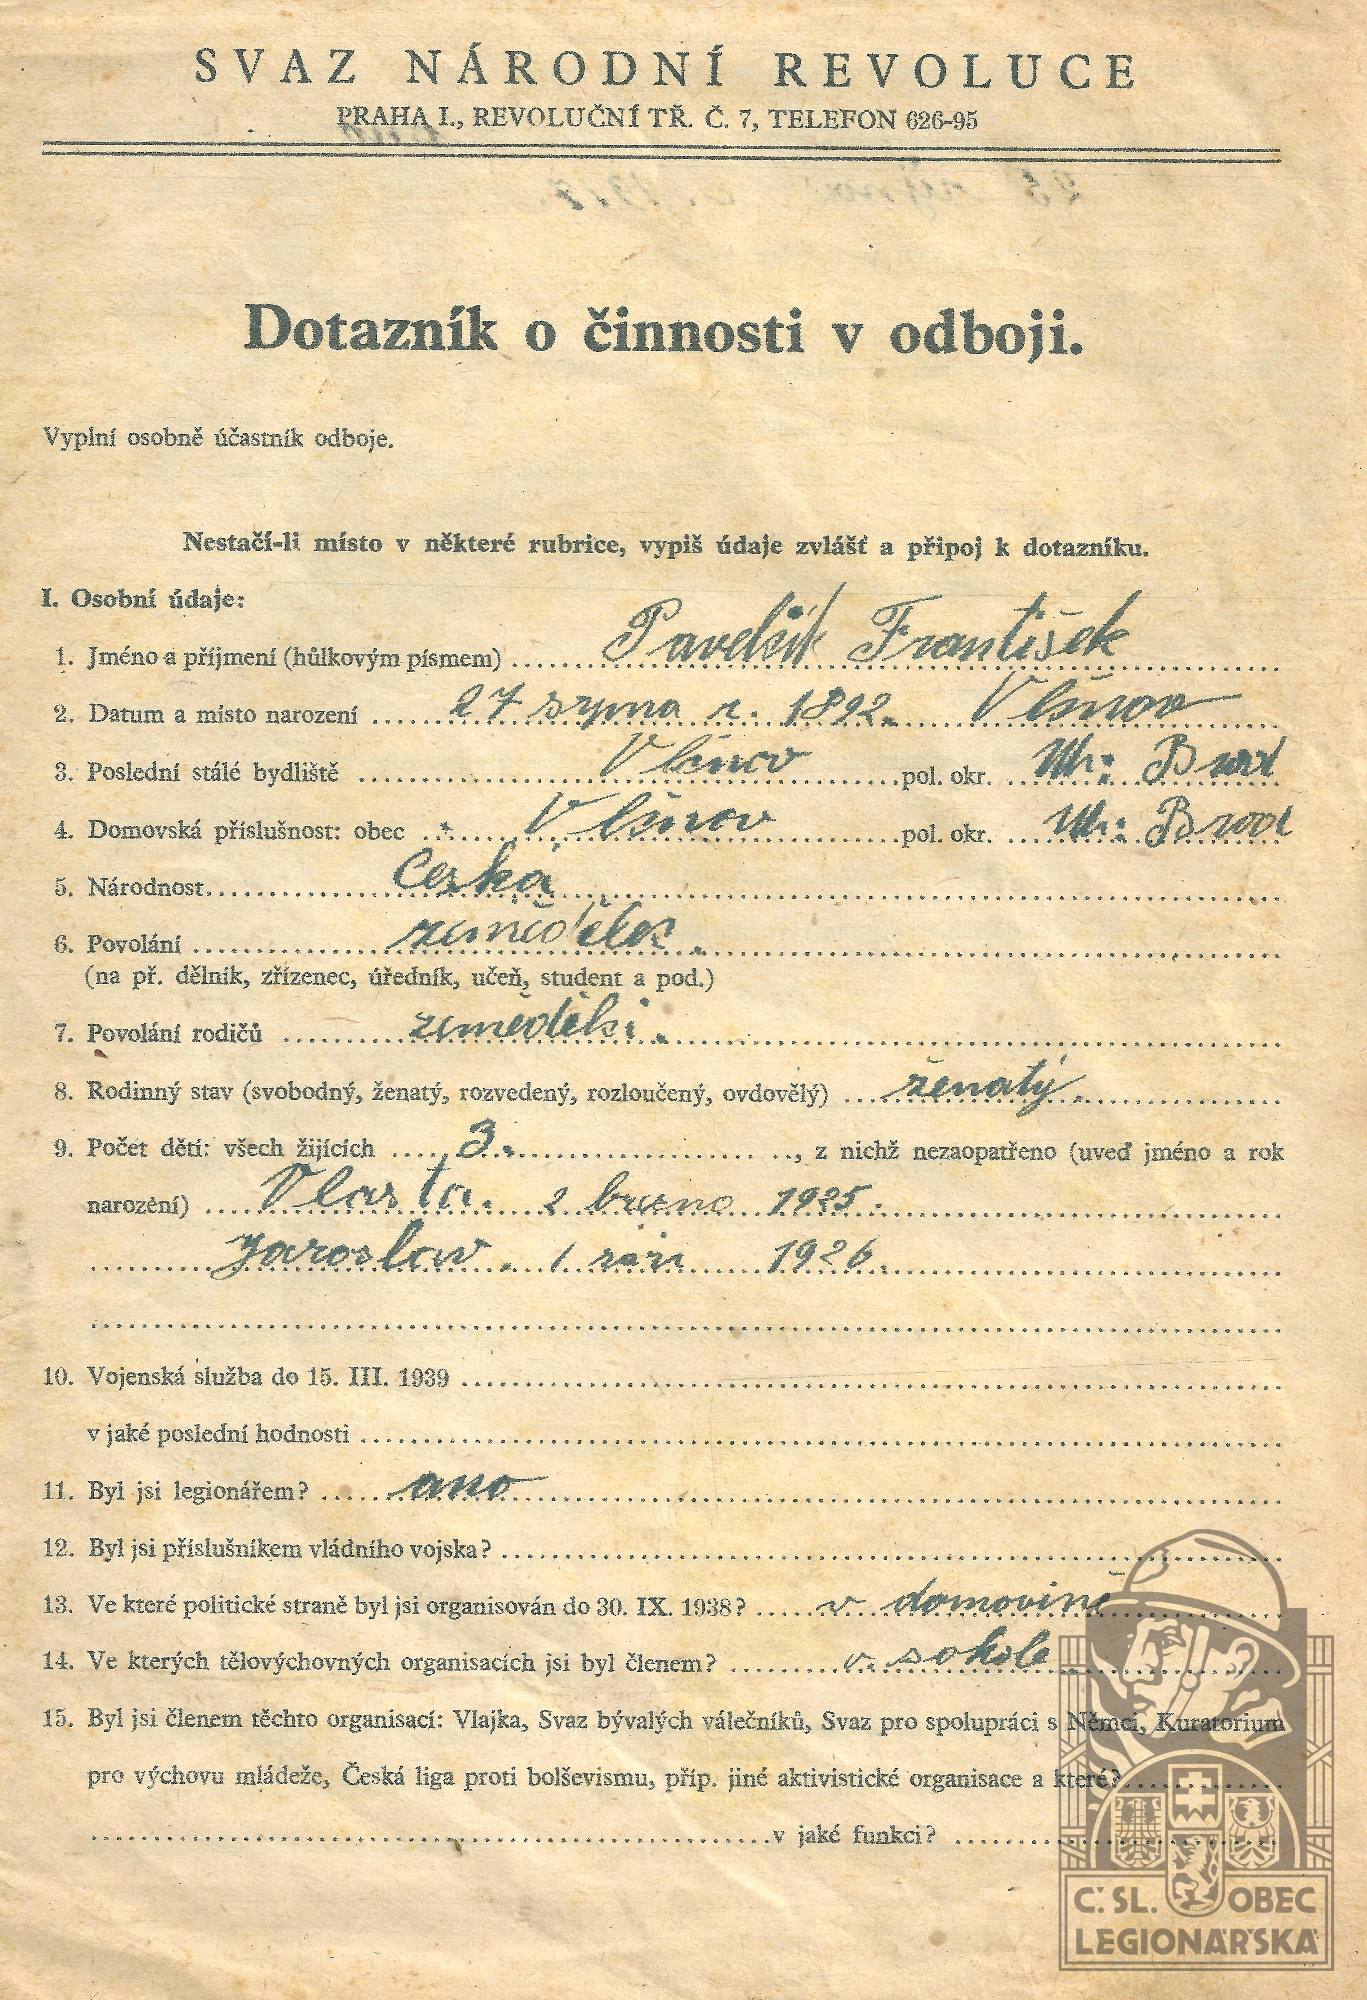 SVAZ NÁRODNÍ REVOLUCE
PRAHA I., REVOLUČNÍ TŘ. Č. 7, TELEFON 626-95
Dotazník o činnosti v odboji.
Vyplní osobně účastník odboje.
Nestačí-li místo v některé rubrice, vypiš údaje zvlášť a připoj k dotazníku.
I. Osobní údaje:
1. Jméno a příjmení (hůlkovým písmem) Pavelčík František
2. Datum a místo narození 27 srpna r. 1892. Vlčnov
3. Poslední stálé bydliště Vlčnov pol. okr. Uh: Brod
4. Domovská příslušnost: obec Vlčnov pol. okr. Uh: Brod
5. Národnost česká
6. Povolání zemědělec.
(na př. dělník, zřízenec, úředník, učeň, student a pod.)
7. Povolání rodičů zemědělci.
8. Rodinný stav (svobodný, ženatý, rozvedený, rozloučený, ovdovělý) ženatý.
9. Počet dětí: všech žijících 3. , z nichž nezaopatřeno (uveď jméno a rok
narození) Vlasta. 2 března 1925.
Jaroslav. 1 září 1926.
10. Vojenská služba do 15. III. 1939
v jaké poslední hodnosti
11. Byl jsi legionářem? ano
12. Byl jsi příslušníkem vládního vojska?
13. Ve které politické straně byl jsi organisován do 30. IX. 1938? v domovině
14. Ve kterých tělovýchovných organisacích jsi byl členem? v. sokole
15. Byl jsi členem těchto organisací: Vlajka, Svaz bývalých válečníků, Svaz pro spolupráci s Němci, Kuratorium
pro výchovu mládeže, Česká liga proti bolševismu, příp. jiné aktivistické organisace a které?
v jaké funkci?
Č.SL. OBEC
LEGIONÁŘSKÁ